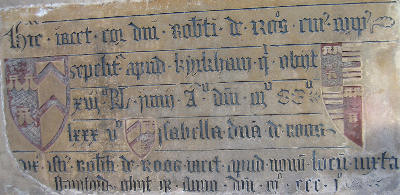 Hic · iacet · cor · dni · Robti · de · Roos · cui · corp
sepelit · apud · kyrkham · q · obijt
xiii · kl · junij · A° · dni · m° · cc°
lxxx v° isabella · dna · de · roos
ux · isti · Robti · de · Roos · iacet · apud · nouu · locu · iuxta
Stanford · obijt · A° · dni · m° · ccc · i°